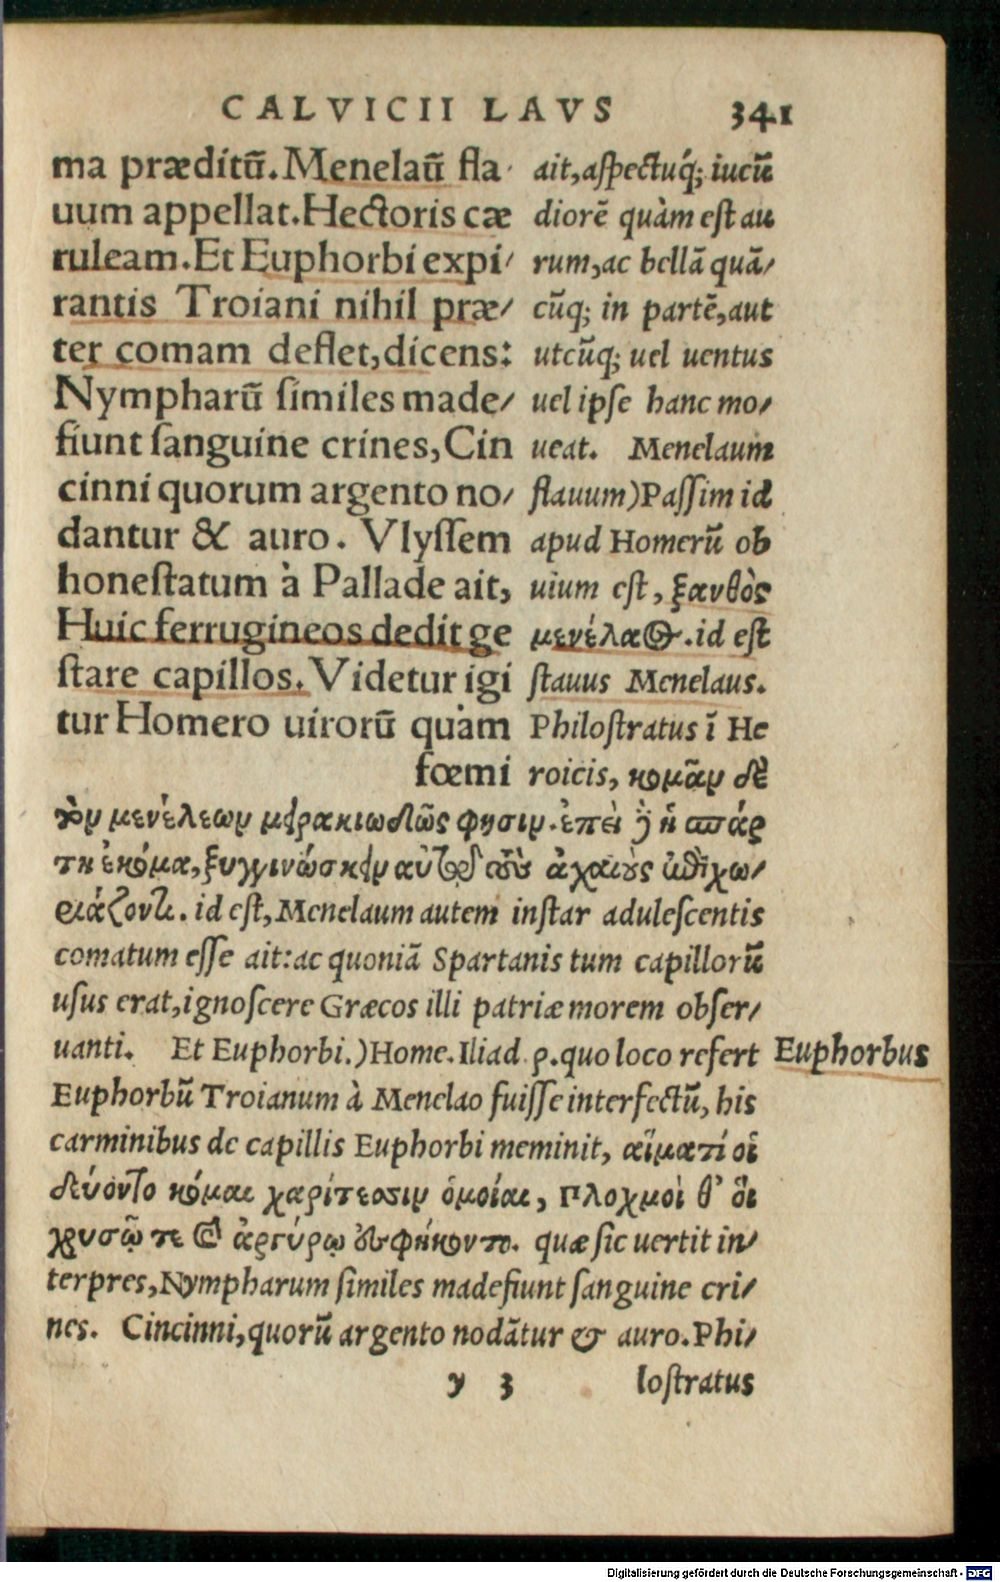 CALVICII LAVS 341
ma præditū. Menelaū fla-
uum appellat. Hectoris cæ
ruleam. Et Euphorbi expi/
rantis Troiani nihil præ/
ter comam deflet, dicens:
Nympharū ſimiles made/
fiunt ſanguine crines, Cin
cinni quorum argento no/
dantur & auro. Vlyſſem
honeſtatum à Pallade ait,
Huic ferrugineos dedit ge
ſtare capillos. Videtur igi
tur Homero uirorū quàm
fœmi
ait, aſpectuq́; iucū
diorē quàm eſt au
rum, ac bellā quā/
cūq; in partē, aut
utcūq; uel uentus
uel ipſe hanc mo/
ueat. Menelaum
flauum) Paſſim id
apud Homerū ob
uium eſt, ξανθὸς
μενέλαος. id eſt
flauus Menelaus.
Philoſtratus ī He
roicis, κομᾶν δὲ
τὸν μενέλεων μειρακιωδῶς φησιν. ἐπεὶ δὲ ἡ σπάρ
τη ἐκόμα, ξυγγινώσκειν αὐτῷ τοὺς ἀχαιοὺς ἐπιχω/
ριάζοντι. id eſt, Menelaum autem inſtar aduleſcentis
comatum eſſe ait: ac quoniā Spartanis tum capillorū
uſus erat, ignoſcere Græcos illi patriæ morem obſer/
uanti. Et Euphorbi.) Home. Iliad ρ. quo loco refert
Euphorbus
Euphorbū Troianum à Menelao fuiſſe interfectū, his
carminibus de capillis Euphorbi meminit, αἵματί οἱ
δεύοντο κόμαι χαρίτεσσιν ὁμοίαι, Πλοχμοὶ θ' ὃι
χρυσῷ τε καὶ ἀργύρῳ ἐσφήκοντο. quæ ſic uertit in/
terpres, Nympharum ſimiles madefiunt ſanguine cri/
nes. Cincinni, quorū argento nodātur & auro. Phi/
y 3 loſtratus
Digitalisierung gefördert durch die Deutsche Forschungsgemeinschaft - DFG